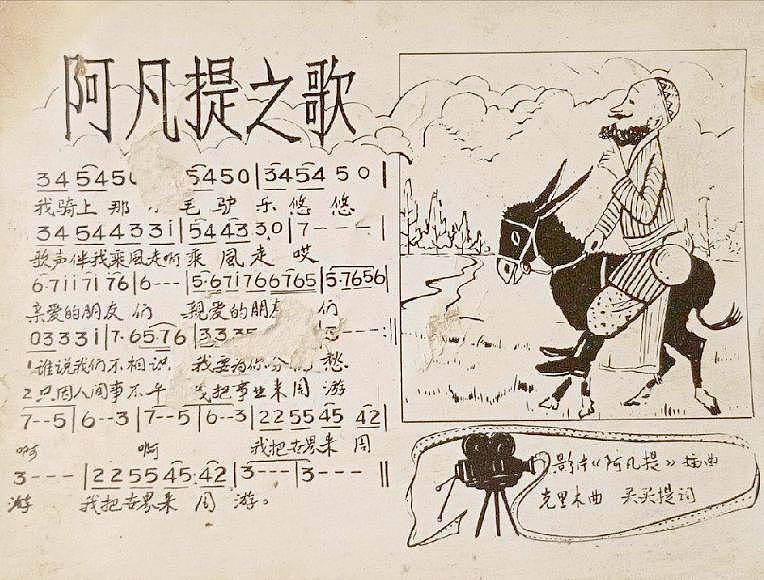 阿凡提之歌
34 5450 5450 | 345450 |
我骑上那 毛驴乐悠悠
34544331 | 544330 | 7---- |
歌声伴我乘風走啊乘風走哎
6·711·7176 | 6--- | 5·671766765 | 5·7656
亲爱的朋友们 亲爱的朋友们
03331 | 7·6576 | 333
1谁说我们不相识 我要为你分 愁
2只因人间事不平 我把事业来周游
7--5 | 6--3 | 7--5 | 6--3 | 22 55 45 42 |
啊 啊 我把世界来周
3--- | 22 55 45·42 | 3--- | 3--- ‖
游 我把世界来周游。
影片《阿凡提》插曲
克里木曲 买买提词